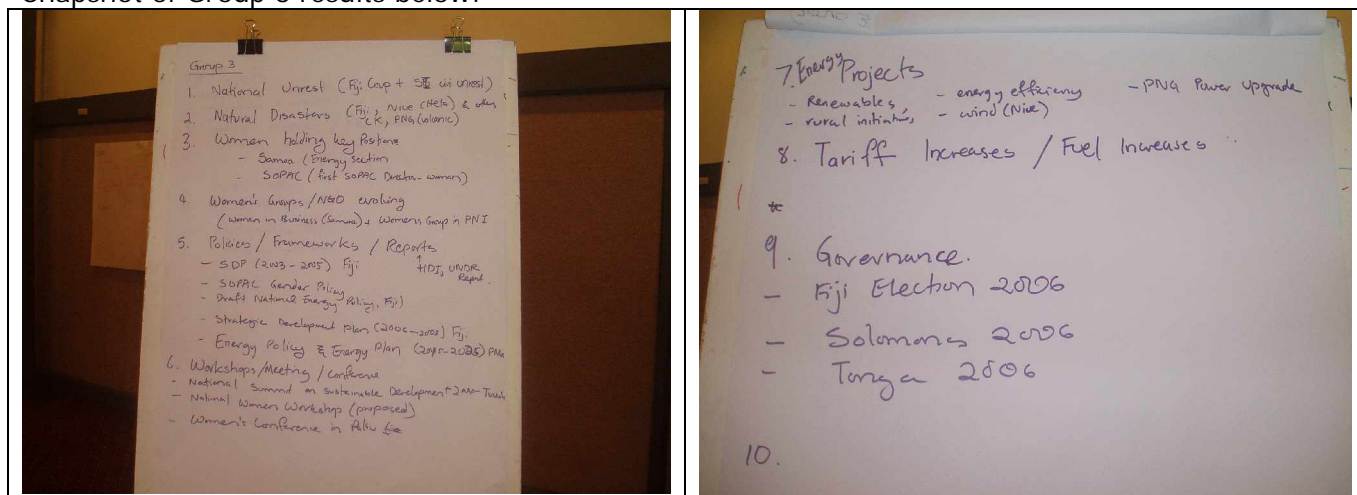 Snapshot of Group 3 results below:
Group 3
1. National Unrest (Fiji Coup + SI civil unrest)
2. Natural Disasters (Fiji, Niue (Heta) & others
CK, PNG (volcanic)
3. Women holding key Positions
- Samoa (Energy section
- SOPAC (first SOPAC Director - women)
4. Women's Groups / NGO evolving
(women in Business (Samoa) + Womens Group in PNI
5. Policies / Frameworks / Reports
- SDP (2003-2005) Fiji
HDI, UNDR
Report.
- SOPAC Gender Policy
- Draft National Energy Policy, Fiji)
- Strategic Development Plan (2006-2008) Fiji
- Energy Policy & Energy Plan PNG
6. Workshops/Meeting / Conference
- National Summit on Sustainable Development
- National Women Workshop (proposed)
- Women's Conference in
7. Energy Projects
- Renewables, - energy efficiency - PNG Power Upgrade
- rural initiatives, - wind (Niue)
8. Tariff Increases / Fuel Increases
*
9. Governance.
- Fiji Election 2006
- Solomons 2006
- Tonga 2006
10.